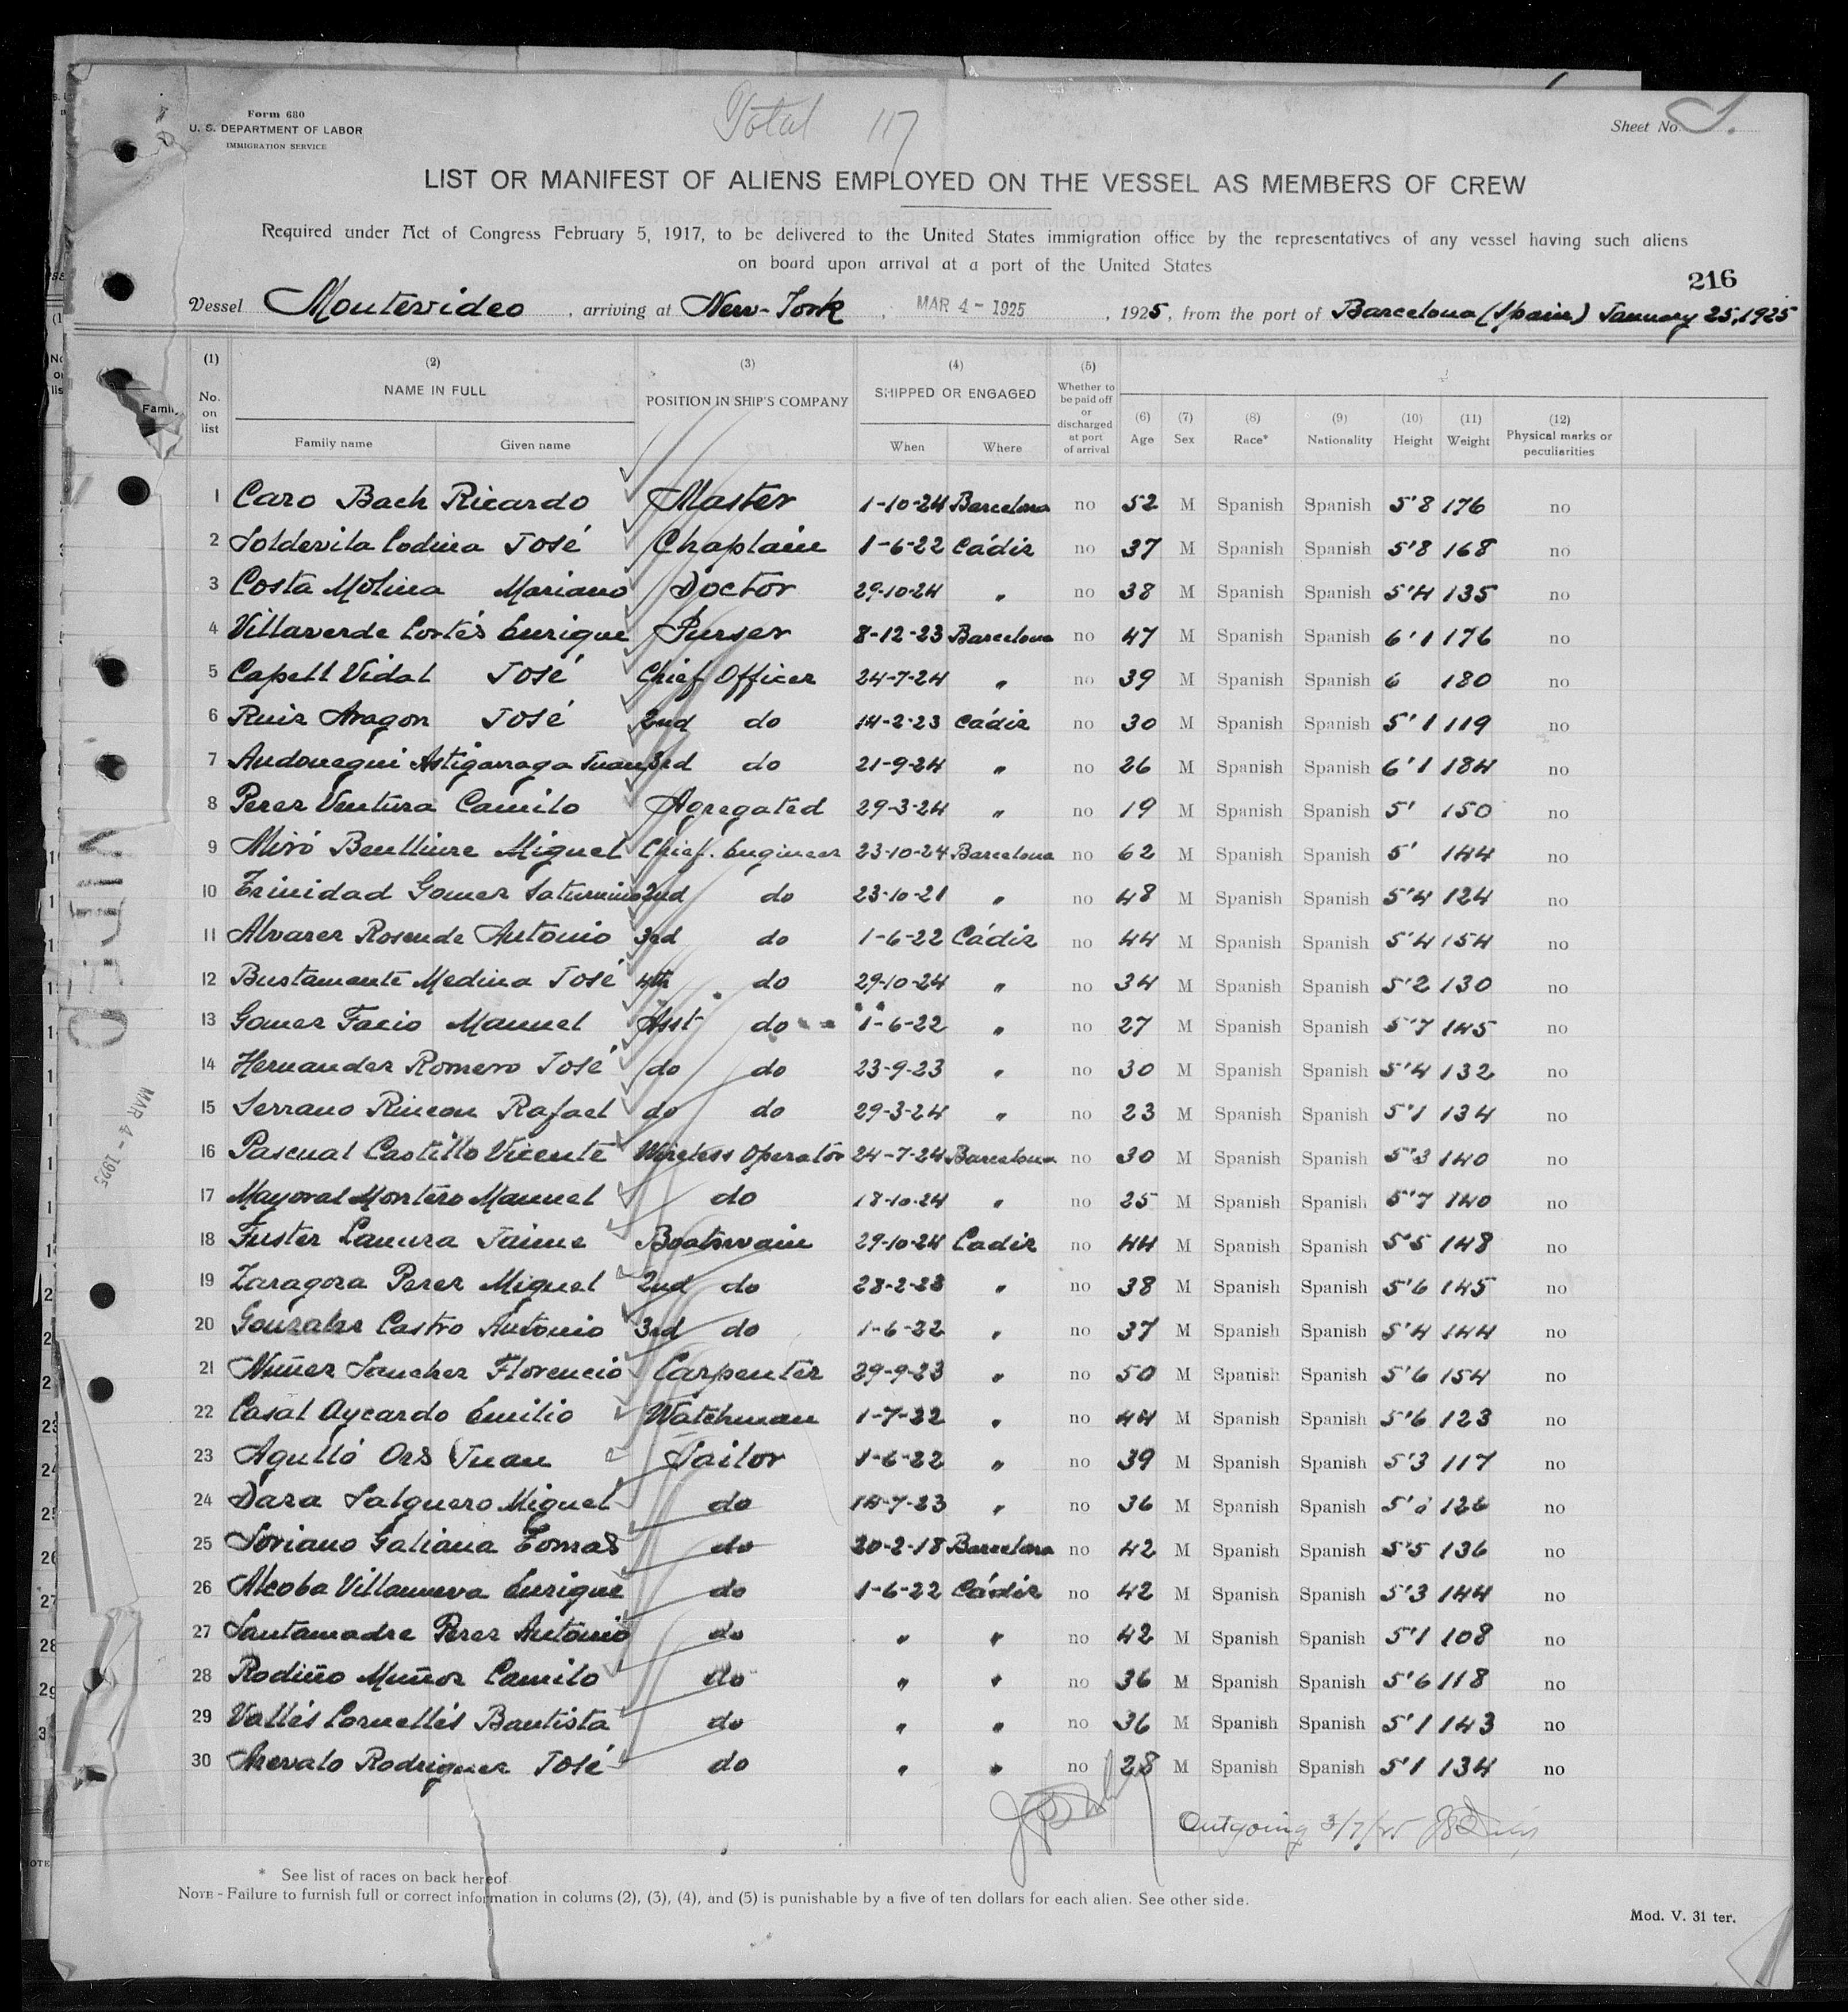 Total 117
Form 680
U. S. DEPARTMENT OF LABOR
IMMIGRATION SERVICE
Sheet No.
LIST OR MANIFEST OF ALIENS EMPLOYED ON THE VESSEL AS MEMBERS OF CREW
Required under Act of Congress February 5, 1917, to be delivered to the United States immigration office by the representatives of any vessel having such aliens
on board upon arrival at a port of the United States
216
Vessel Montevideo, arriving at New-York, MAR 4 - 1925, 1925, from the port of Barcelona (Spain) January 25, 1925
(1) No. on list (2) NAME IN FULL Family name Given name (3) POSITION IN SHIP'S COMPANY (4) SHIPPED OR ENGAGED When Where (5) Whether to be paid off or discharged at port of arrival (6) Age (7) Sex (8) Race* (9) Nationality (10) Height (11) Weight (12) Physical marks or peculiarities
1 Caro Bach Ricardo Master 1-10-24 Barcelona no 52 M Spanish Spanish 5'8 176 no
2 Soldevila Codina José Chaplain 1-6-22 Cádiz no 37 M Spanish Spanish 5'8 168 no
3 Costa Molina Mariano Doctor 29-10-24 " no 38 M Spanish Spanish 5'4 135 no
4 Villaverde Cortés Enrique Purser 8-12-23 Barcelona no 47 M Spanish Spanish 6'1 176 no
5 Capell Vidal José Chief Officer 24-7-24 " no 39 M Spanish Spanish 6 180 no
6 Ruiz Aragon José 2nd do 14-2-23 Cádiz no 30 M Spanish Spanish 5'1 119 no
7 Andonegui Astigarraga Juan 3rd do 21-9-24 " no 26 M Spanish Spanish 6'1 184 no
8 Perez Ventura Camilo Agregated 29-3-24 " no 19 M Spanish Spanish 5' 150 no
9 Miró Benlliure Miguel Chief. Engineer 23-10-24 Barcelona no 62 M Spanish Spanish 5' 144 no
10 Trinidad Gomez Saturnino 2nd do 23-10-21 " no 48 M Spanish Spanish 5'4 124 no
11 Alvarez Rosende Antonio 3rd do 1-6-22 Cádiz no 44 M Spanish Spanish 5'4 154 no
12 Bustamante Medina José 4th do 29-10-24 " no 34 M Spanish Spanish 5'2 130 no
13 Gomez Facio Manuel Asst do 1-6-22 " no 27 M Spanish Spanish 5'7 145 no
14 Hernandez Romero José do do 23-9-23 " no 30 M Spanish Spanish 5'4 132 no
15 Serrano Rincon Rafael do do 29-3-24 " no 23 M Spanish Spanish 5'1 134 no
16 Pascual Castillo Vicente Wireless Operator 24-7-24 Barcelona no 30 M Spanish Spanish 5'3 140 no
17 Mayoral Montero Manuel do 18-10-24 " no 25 M Spanish Spanish 5'7 140 no
18 Fuster Lanuza Jaime Boatswain 29-10-24 Cadiz no 44 M Spanish Spanish 5'5 148 no
19 Zaragoza Perez Miguel 2nd do 28-2-23 " no 38 M Spanish Spanish 5'6 145 no
20 Gonzalez Castro Antonio 3rd do 1-6-22 " no 37 M Spanish Spanish 5'4 144 no
21 Nuñez Sanchez Florencio Carpenter 29-9-23 " no 50 M Spanish Spanish 5'6 154 no
22 Casal Aycardo Emilio Watchman 1-7-22 " no 44 M Spanish Spanish 5'6 123 no
23 Agulló Ors Juan Sailor 1-6-22 " no 39 M Spanish Spanish 5'3 117 no
24 Daza Salguero Miguel do 14-7-23 " no 36 M Spanish Spanish 126 no
25 Soriano Galiana Tomas do 20-2-18 Barcelona no 42 M Spanish Spanish 5'5 136 no
26 Alcoba Villanueva Enrique do 1-6-22 Cádiz no 42 M Spanish Spanish 5'3 144 no
27 Santamadre Perez Antonio do " " no 42 M Spanish Spanish 5'1 108 no
28 Rodiño Muñoz Camilo do " " no 36 M Spanish Spanish 5'6 118 no
29 Vallés Cornellés Bautista do " " no 36 M Spanish Spanish 5'1 143 no
30 Arevalo Rodriguez José do " " no 28 M Spanish Spanish 5'1 134 no
Outgoing 3/7/25
* See list of races on back hereof
NOTE - Failure to furnish full or correct information in colums (2), (3), (4), and (5) is punishable by a five of ten dollars for each alien. See other side.
Mod. V. 31 ter.
MAR 4 - 1925